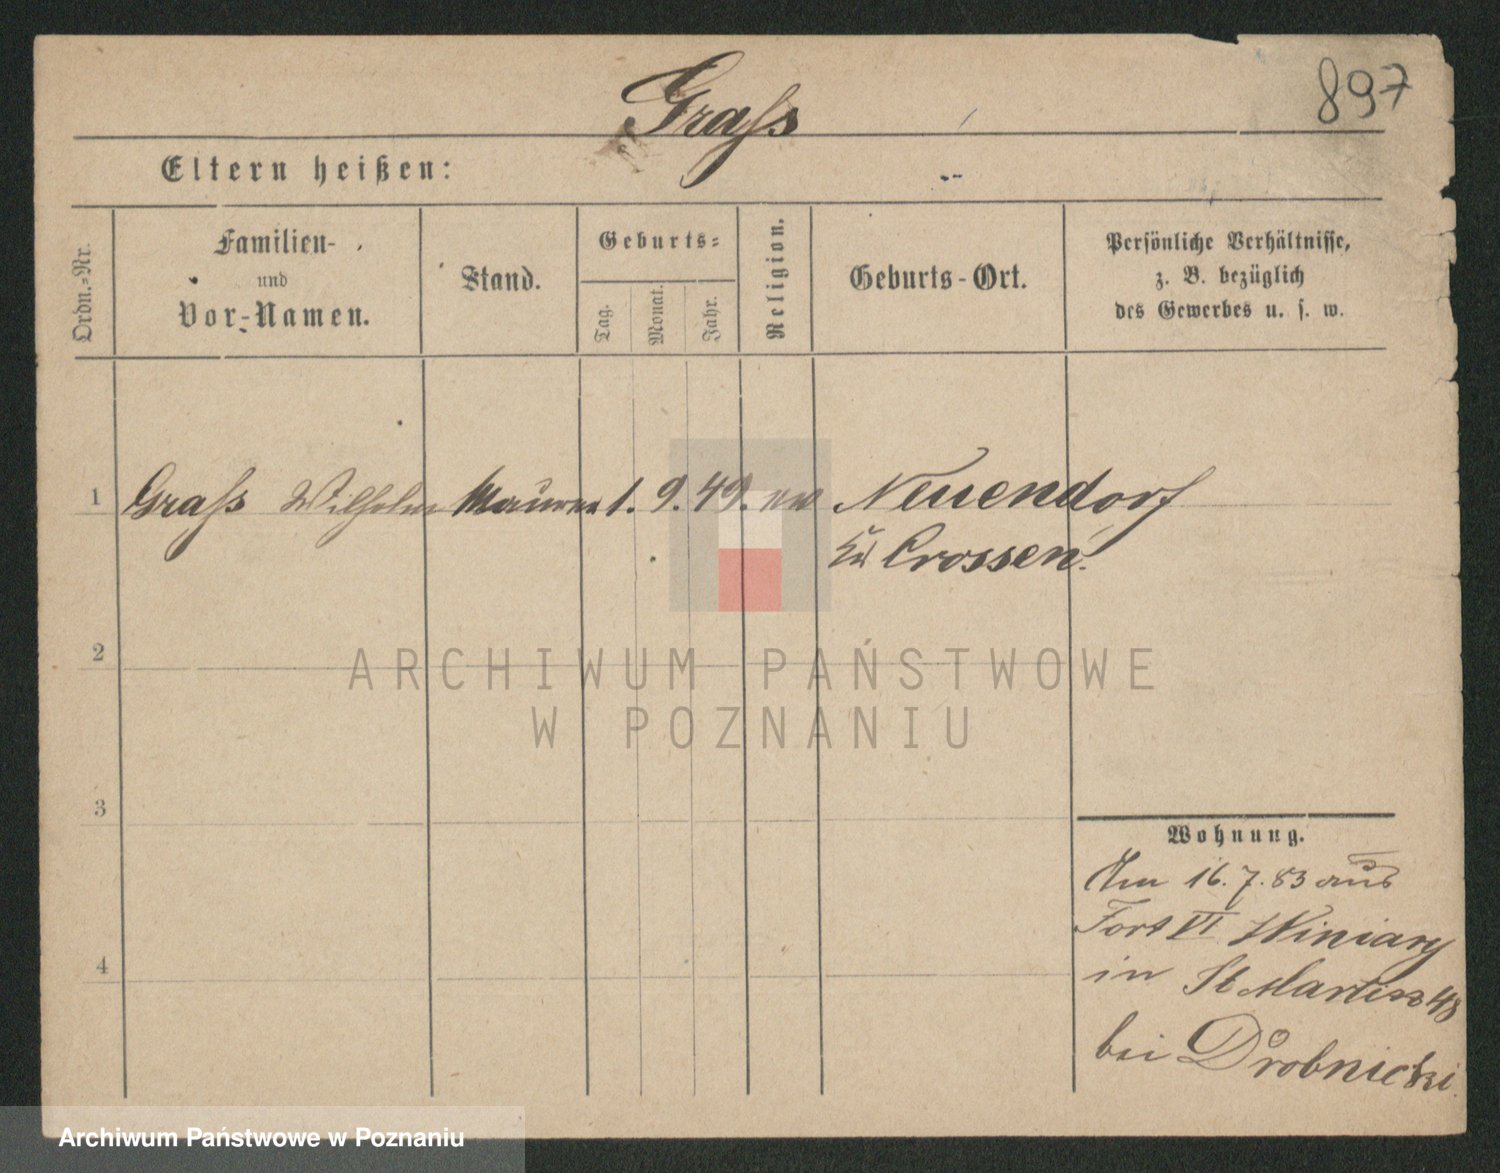 897
Graſs
Eltern heißen:
Ordn.-Nr.
Familien-
und
Vor-Namen.
Stand.
Geburts-
Tag.
Monat.
Jahr.
Religion.
Geburts-Ort.
Persönliche Verhältnisse,
z. B. bezüglich
des Gewerbes u. s. w.
1 Graſs Wilhelm Maurer 1. 9. 49. Neuendorf
Crossen.
2
3
4
Wohnung.
Am 16. 7. 83 aus
Fort VI Winiary
in St Martin 48
bei Drobnicki
ARCHIWUM PAŃSTWOWE
W POZNANIU
Archiwum Państwowe w Poznaniu